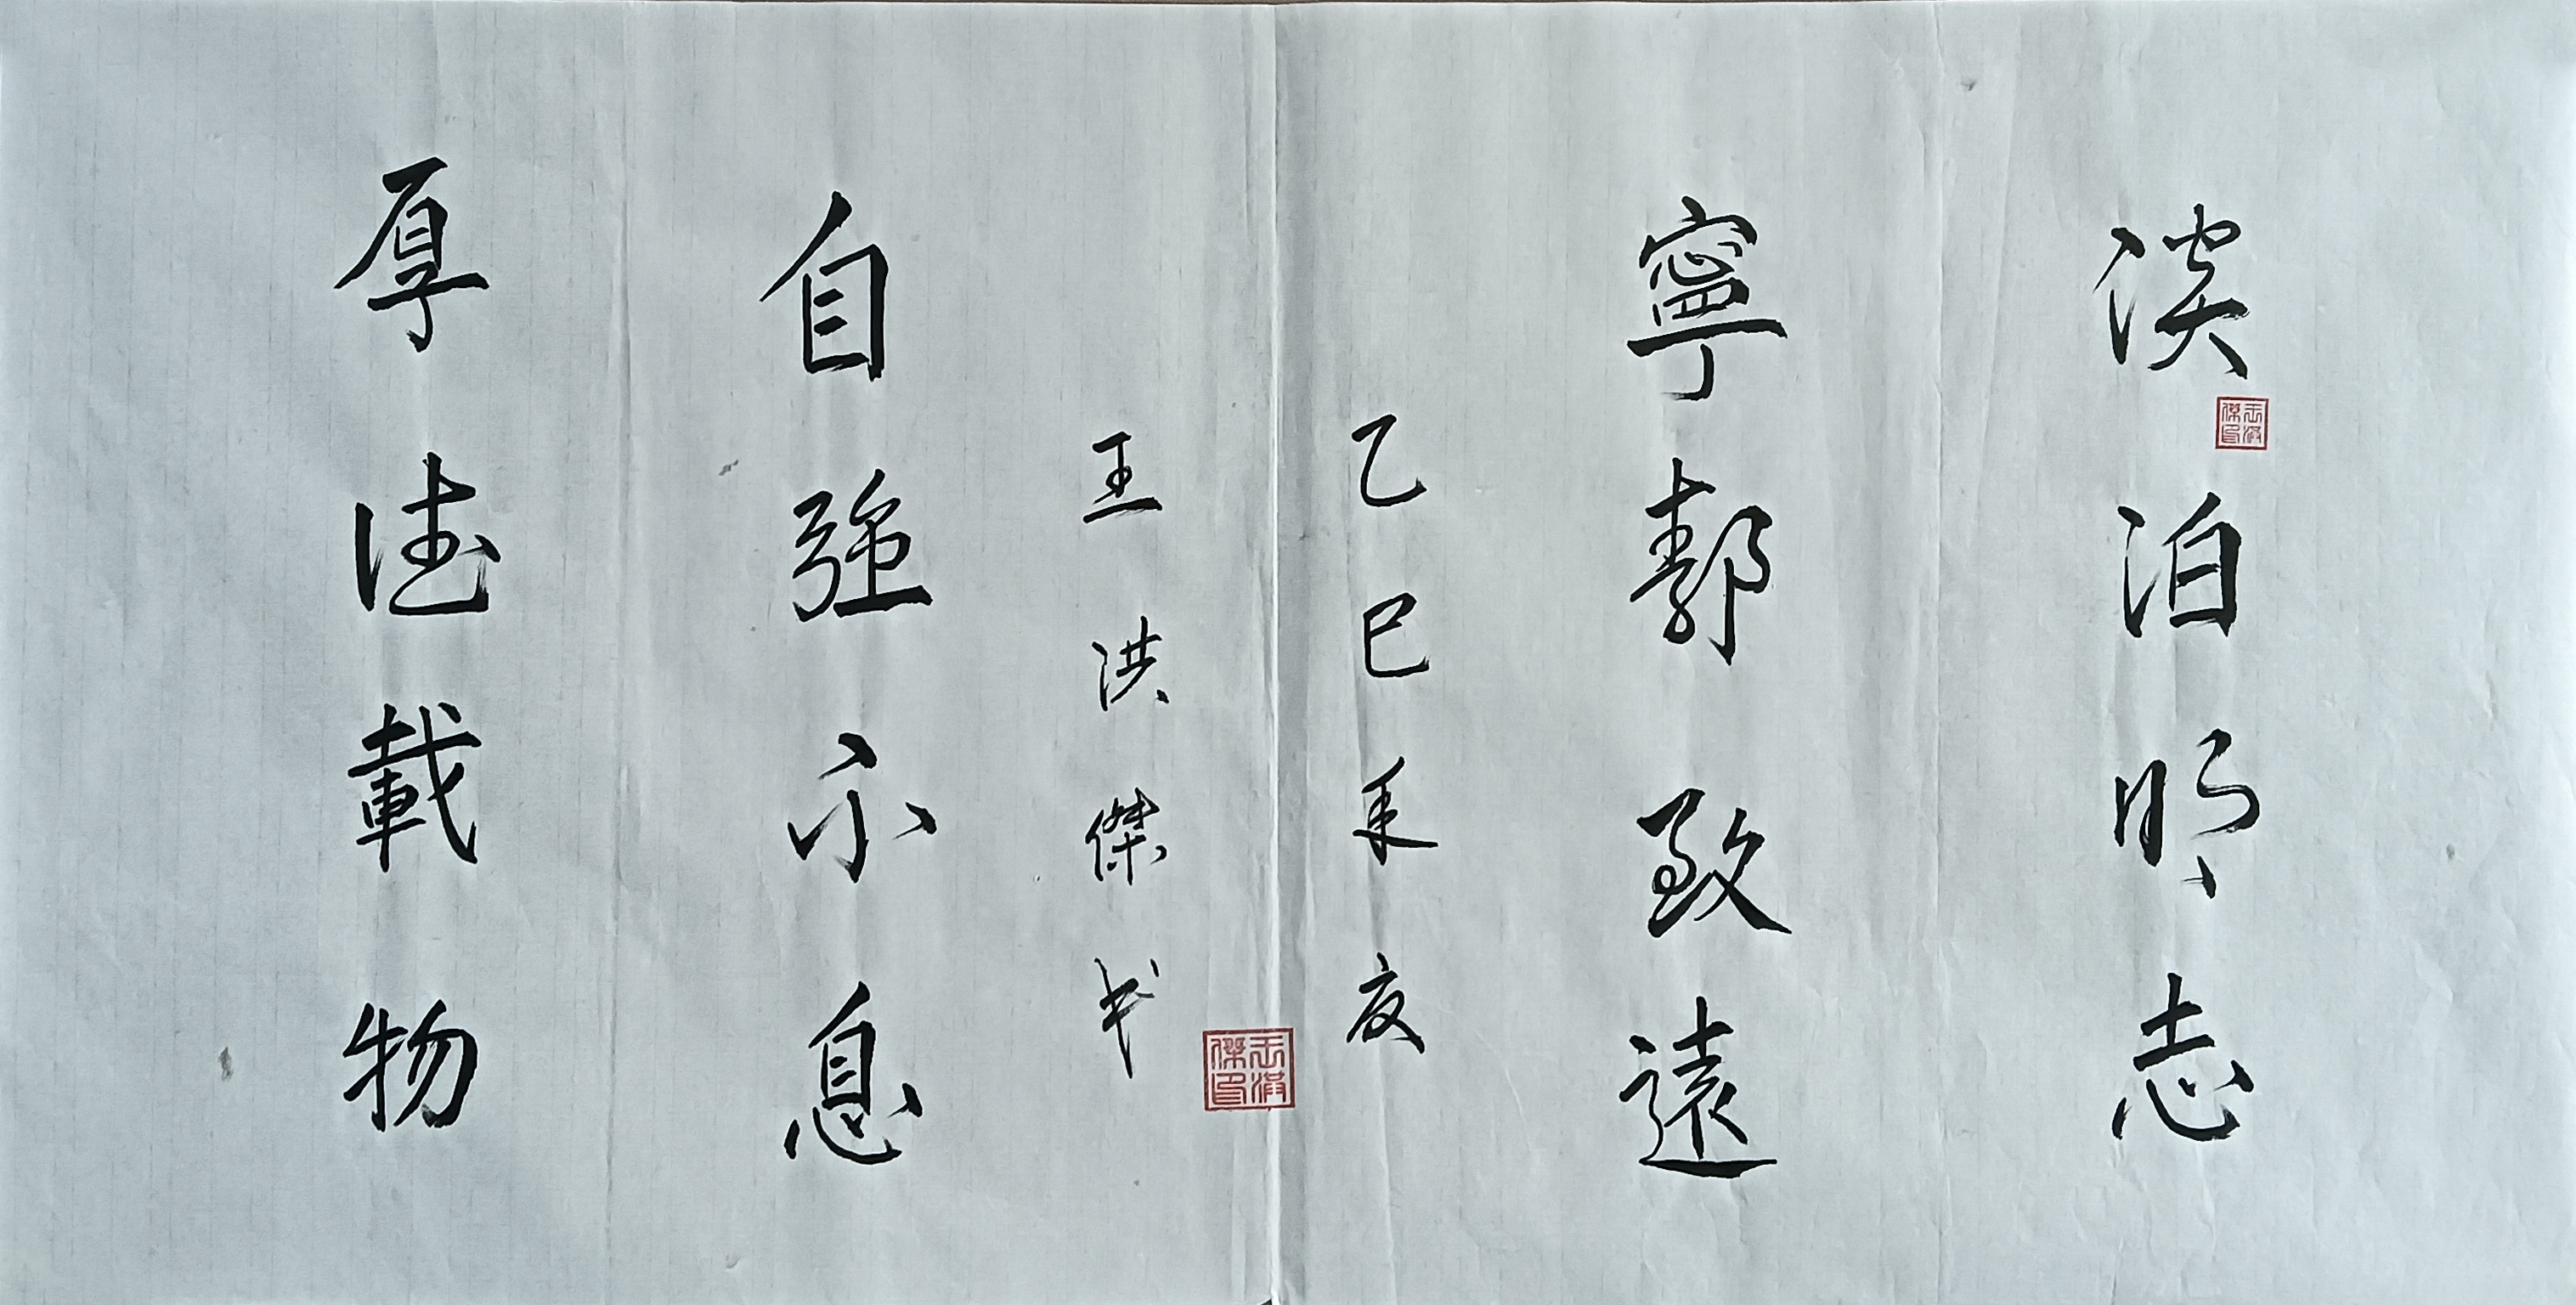 淡泊明志
寧靜致遠
乙巳年夏
王洪傑书
自強不息
厚德載物
王洪傑印
王洪傑印